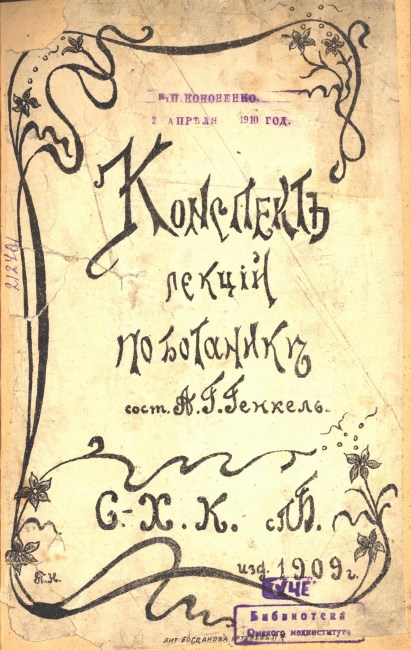 В.П. КОНОНЕНКО.
2 АПРѢЛЯ 1910 ГОД.
21270
Конспектъ
лекцій
по ботаникѣ
сост. А. Г. Генкель.
С.-Х. К. сПБ.
изд. 1909 г.
Я.К.
Библиотека
Омского мединститута
ЛИТ. БОГДАНОВА